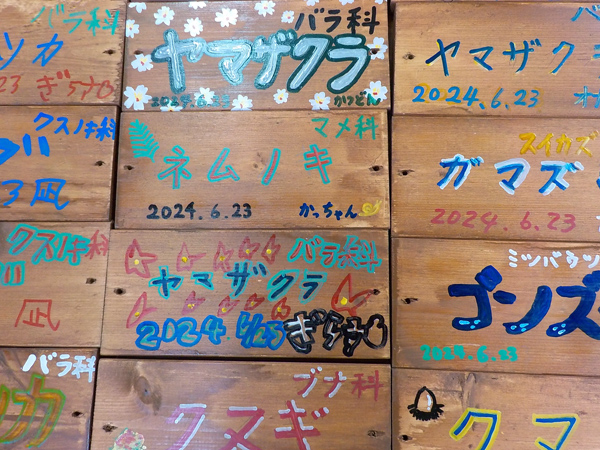 バラ科
ツカ
23 ぎらう
バラ科
ヤマザクラ
2024.6.23 かつどん
ヤマザク
2024.6.23
クスノキ科
3 凪
マメ科
ネムノキ
2024.6.23 かっちゃん
スイカズ
ガマズ
2024.6.23
クスノキ科
凪
バラ科
ヤマザクラ
2024 6/23 ぎらう
ミツバウツ
ゴンズ
2024.6.23
バラ科
カ
ブナ科
クヌギ
クマ